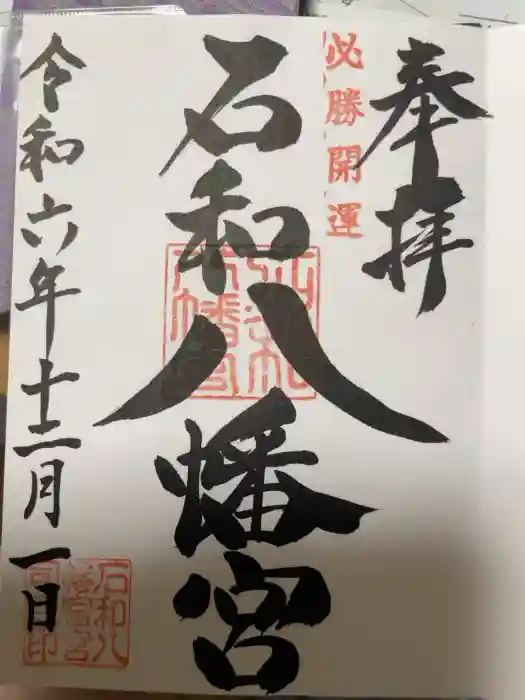 奉拝
必勝開運
石和八幡宮
令和六年十二月一日
石和八幡宮